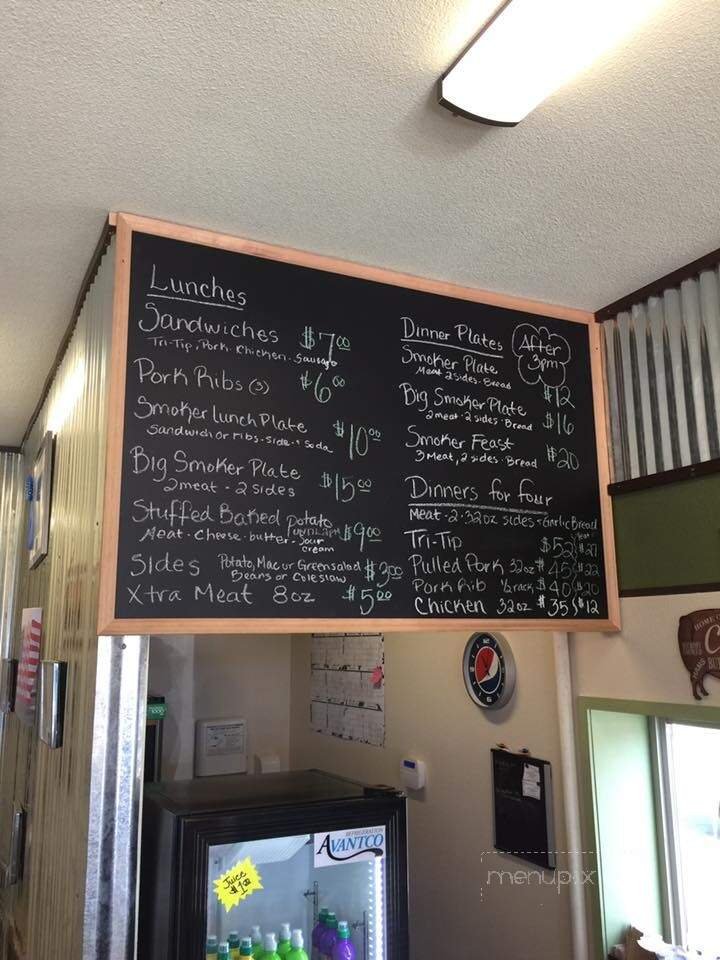 Lunches
Sandwiches $7.00
Tri-Tip, Pork, Chicken, Sausage
Pork Ribs (3) $6.00
Smoker Lunch Plate $10.00
Sandwich or ribs - side - Soda
Big Smoker Plate $15.00
2 meat - 2 sides
Stuffed Baked Potato $9.00
Meat - Cheese - butter - Sour cream
Sides Potato, Mac or Green salad $3.00
Beans or Coleslaw
Xtra Meat 8oz $5.00
Dinner Plates After 3pm
Smoker Plate $12
Meat 2 sides - Bread
Big Smoker Plate $16
2 meat - 2 sides - Bread
Smoker Feast $20
3 Meat, 2 sides - Bread
Dinners for four
Meat - 2 - 32oz sides - Garlic Bread
Tri-Tip $52 $27
Pulled Pork 32oz $45 $22
Pork Rib ½ rack $40 $20
Chicken 32oz $35 $12
REFRIGERATION
AVANTCO
Juice
$1.00
menupix